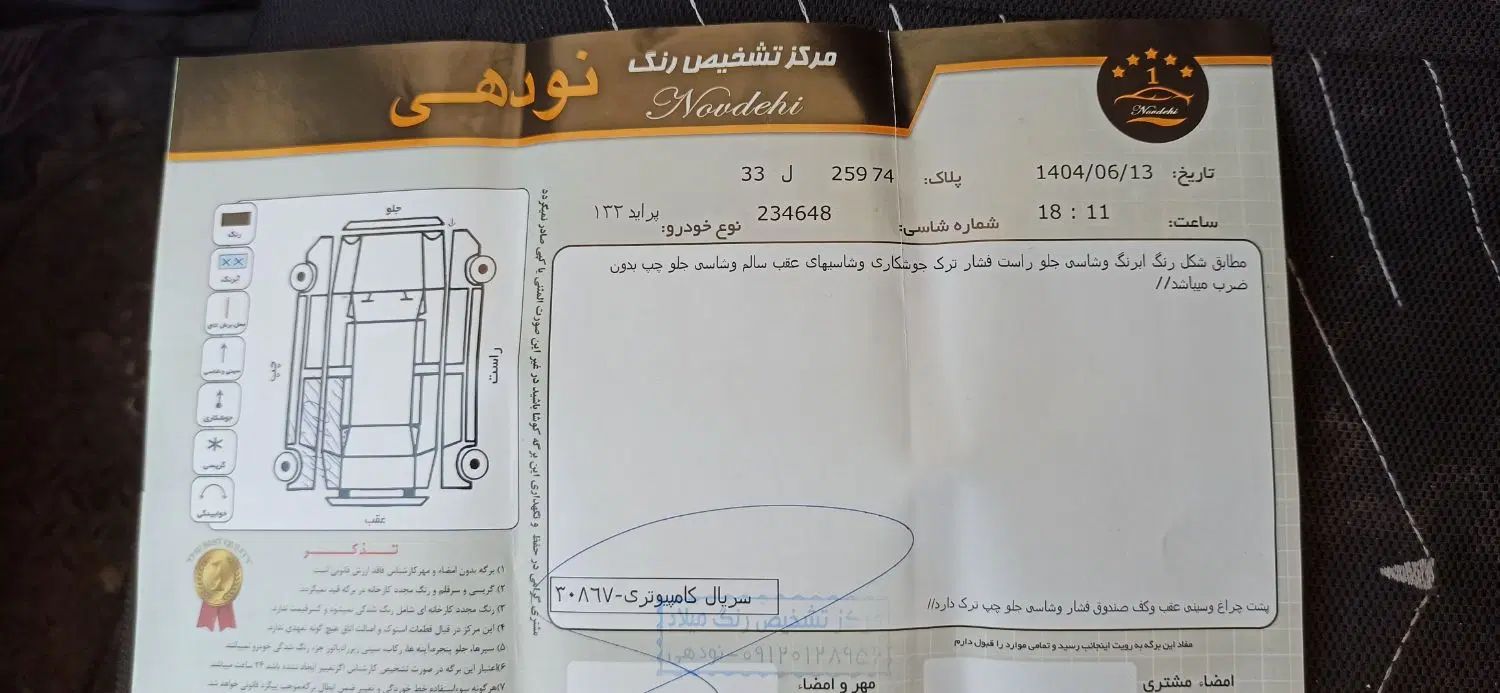 مرکز تشخیص رنگ
نودهی
Novdehi
1
Novdehi
تاریخ: 1404/06/13
پلاک: 74 259 ل 33
ساعت: 18 : 11
شماره شاسی: 234648
نوع خودرو: پراید ۱۳۲
مطابق شکل رنگ ابرنگ وشاسی جلو راست فشار ترک جوشکاری وشاسیهای عقب سالم وشاسی جلو چپ بدون
ضرب میباشد//
پشت چراغ وسینی عقب وکف صندوق فشار وشاسی جلو چپ ترک دارد//
سریال کامپیوتری-۳۰۸٦۷
مفاد این برگه به رویت اینجانب رسید و تمامی موارد را قبول دارم
امضاء مشتری
مهر و امضاء
تشخیص رنگ میلاد
نودهی
مشتری گرامی در حفظ و نگهداری این برگه کوشا باشید در غیر این صورت المثنی یا کپی صادر نمیگردد
جلو
راست
چپ
عقب
رنگ
آبرنگ
محل برش شدن
سینی و شاسی
جوشکاری
گریسی
خوابیدگی
THE BEST QUALITY
تذکر
۱) برگه بدون امضاء و مهر کارشناس فاقد ارزش قانونی است.
۲) گریسی و سرقلم و رنگ مجدد کارخانه در برگه قید نمیگردد.
۳) رنگ مجدد کارخانه ای شامل رنگ شدگی نمیشود و کسر قیمت ندارد.
۴) این مرکز در قبال قطعات استوک و اصالت اتاق هیچ گونه تعهدی ندارد.
۵) سپرها، جلو پنجره، آینه ها، رکاب، سینی زیر رادیاتور جزء رنگ شدگی خودرو نمیباشد
۶) اعتبار این برگه در صورت تشخیص کارشناس اگر تغییر ایجاد نشده باشد ۲۴ ساعت میباشد.